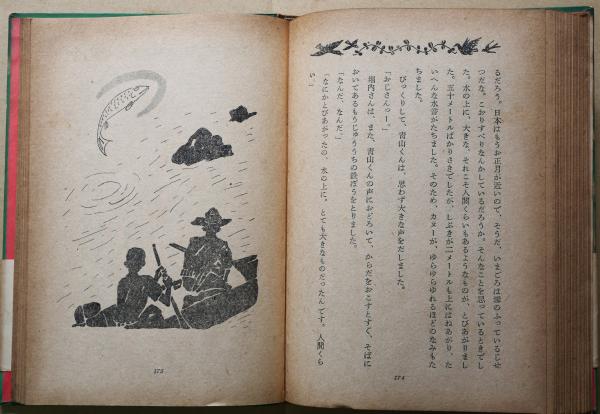 るだろう。日本はもうお正月が近いので、そうだ、いまごろは雪のふっているじせ
つだな。こおりすべりなんかしているだろうか。そんなことを思っているときでし
た。水の上に、大きな、それこそ人間くらいもあるようなものが、とびあがりまし
た。三十メートルばかりさきでしたが、しぶきが二メートルも上にはねあがり、た
いへんな水音がたちました。そのため、カヌーが、ゆらゆらゆれるほどのなみもた
ちました。
びっくりして、青山くんは、思わず大きな声をだしました。
「おじさんっー。」
堀内さんは、また、青山くんの声におどろいて、からだをおこすとすぐ、そばに
おいてあるもうじゅううちの鉄ぽうをとりました。
「なんだ、なんだ。」
「なにかとびあがったの、水の上に。とても大きなものだったんです。人間くら
い。」
174
175